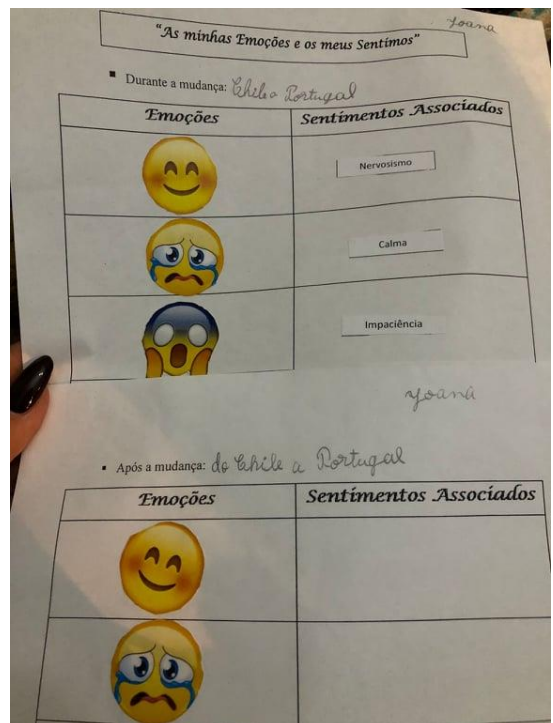 Yoana
"As minhas Emoções e os meus Sentimos"
▪ Durante a mudança: Chile a Portugal
Emoções Sentimentos Associados
Nervosismo
Calma
Impaciência
Yoana
▪ Após a mudança: do Chile a Portugal
Emoções Sentimentos Associados